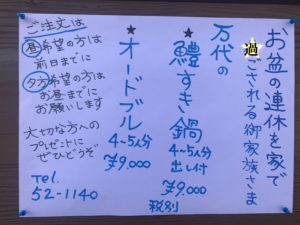 お盆の連休を家で
過ごされる御家族さま
万代の
★鱧すき鍋
4~5人分
出し付
¥9.000
税別
★オードブル
4~5人分
¥9.000
ご注文は
昼希望の方は
前日までに
夕方希望の方は
お昼までに
お願いします
大切な方への
プレゼントに
ぜひどうぞ
Tel.
52-1140